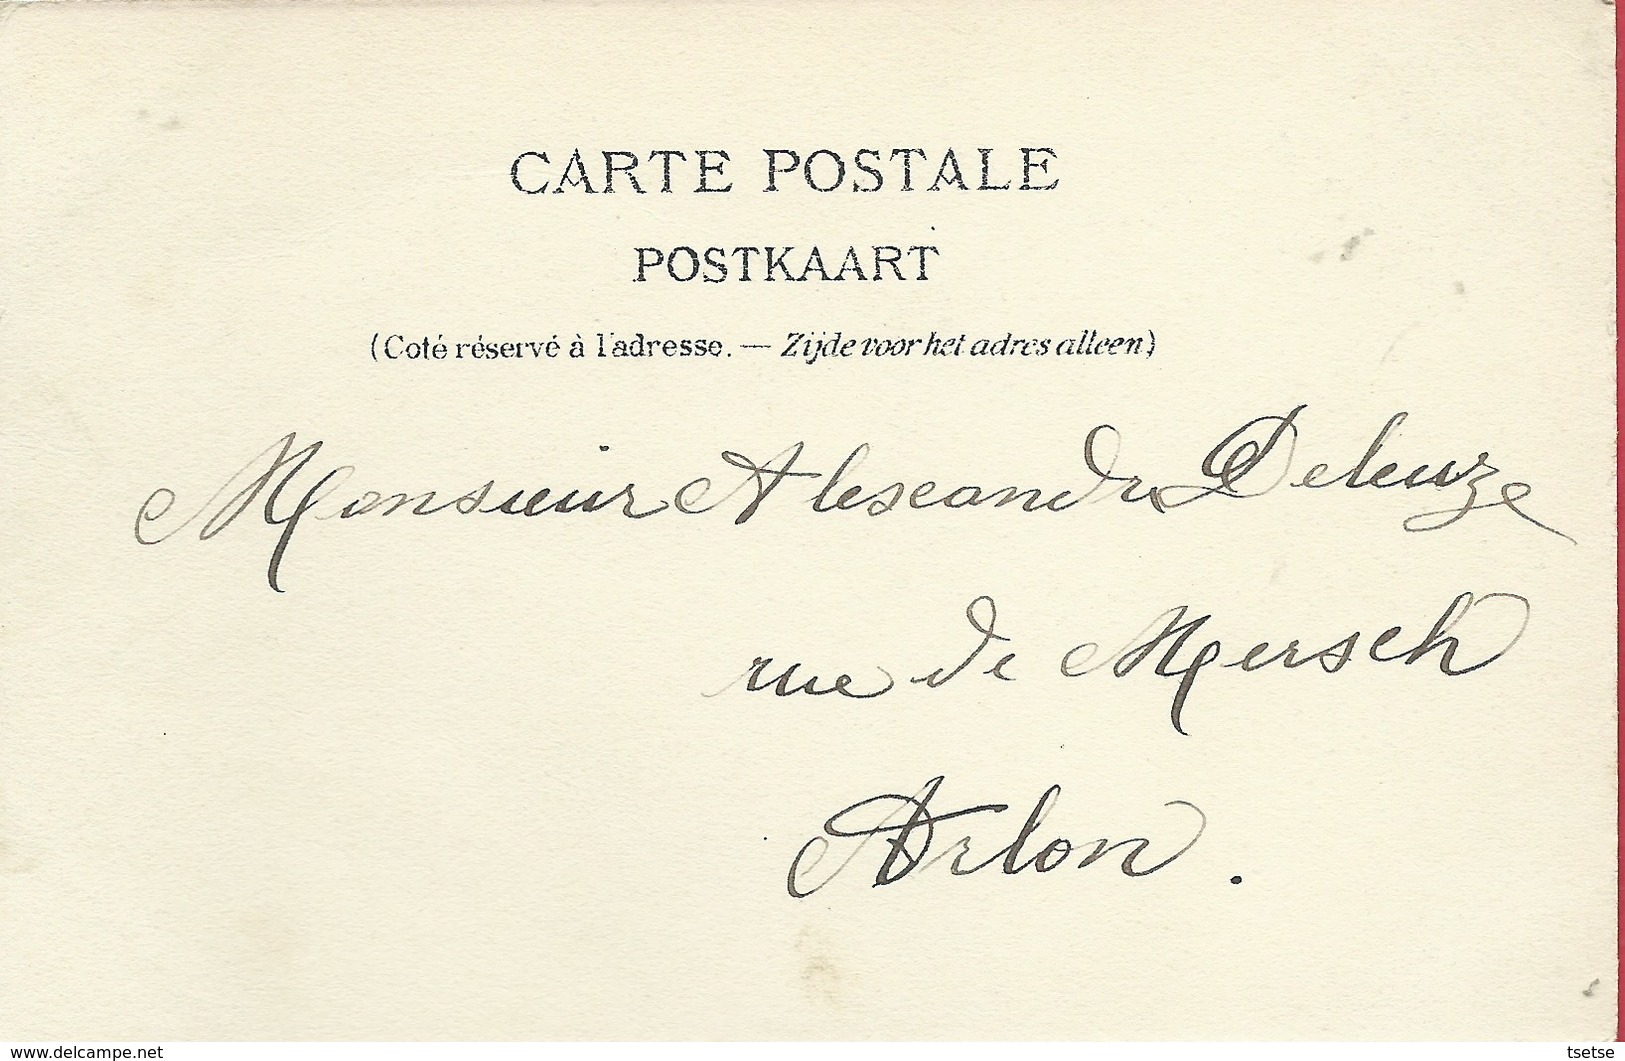 CARTE POSTALE
POSTKAART
(Coté réservé à l'adresse. — Zijde voor het adres alleen)
Monsieur Alexandre Deleuze
rue de Mersch
Arlon.
www.delcampe.net
tsetse